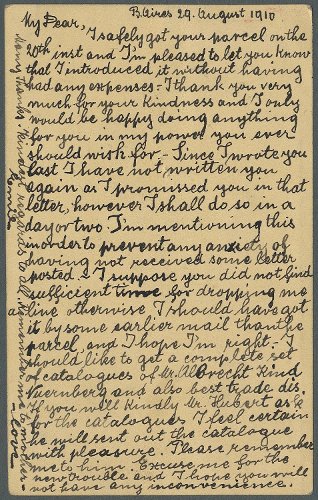 B.Aires 29. August 1910
My Dear,
I safely got your parcel on the
20th inst and I'm pleased to let you know
that I introduced it without having
had any expenses:- I thank you very
much for your Kindness and I only
would be happy doing anything
for you in my power you ever
should wish for. - Since I wrote you
last I have not written you
again as I promissed you in that
letter, however I shall do so in a
day or two. I'm mentiwning this
inorder to prevent any anxiety of
having not received some letter
posted. I suppose you did not find
sufficient time for dropping me
a line otherwise I should have got
it by some earlier mail than the
parcel, and I hope I'm right. I
should like to get a complete set
of catalogues of Mr. Albrecht Kind
Nuernberg and also best trade dis.
If you will Kindly Mr. Hubert ask
for the catalogues I feel certain
he will sent out the catalogue
with pleasure. Please remember
me to him. Excuse me for the
new trouble and I hope you will
not have any inconvenience.
Many thanks Kindest regards to all. Remember me to mother
love